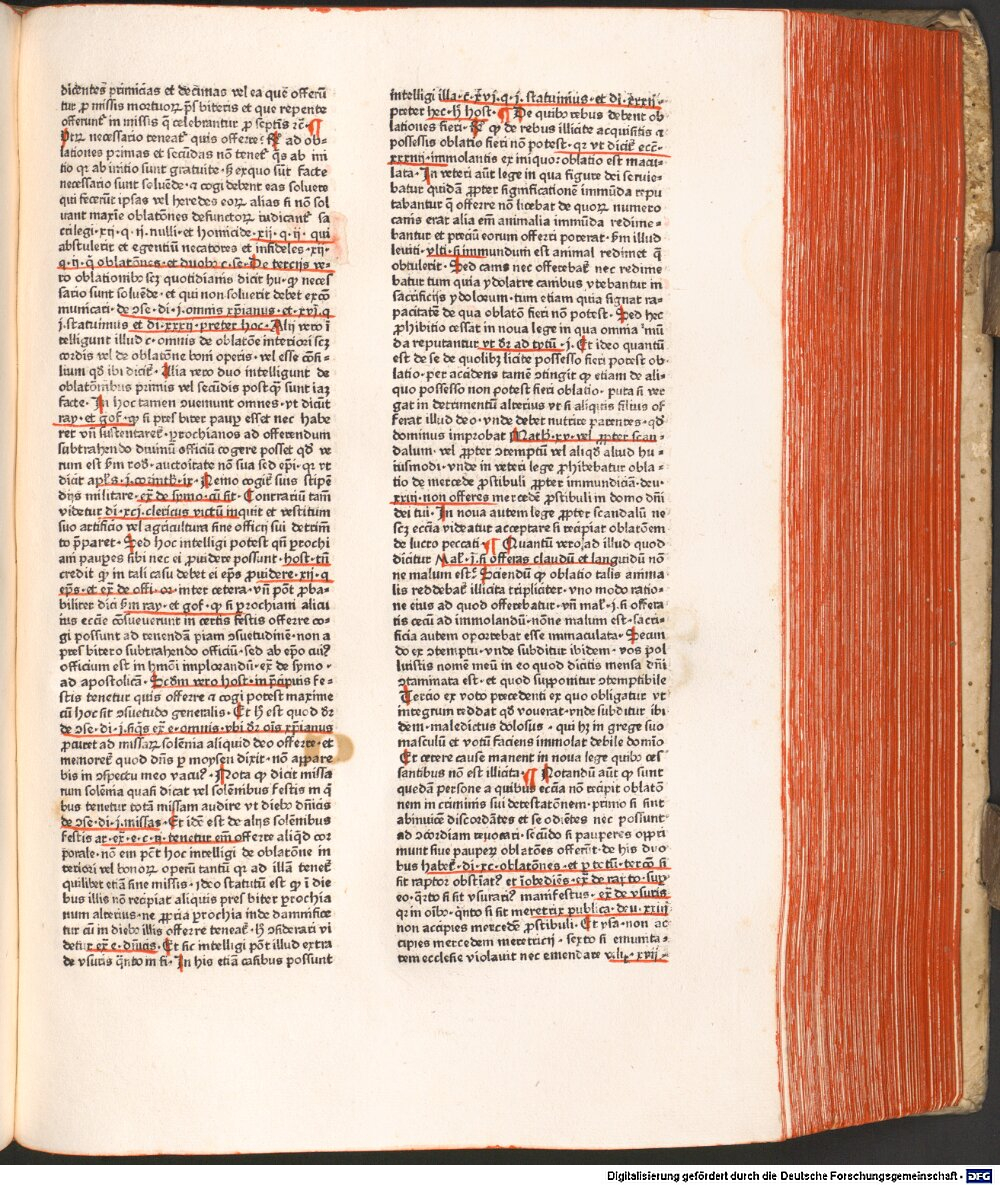 dicentes primicias et decimas vel ea que offerū
tur ꝓ missis mortuoꝝ p̄sbiteris et que repente
offerunt᷑ in missis q̄ celebrantur ꝓ septiś ⁊c̄ ¶
Vtꝝ necessario teneat᷑ quis offerre ad ob
lationes primas et secūdas nō tenet᷑ q̇s ab ini
tio qꝛ ab initio sunt gratuite · ex quo sūt facte
necessario sunt soluēde · ⁊ cogi debent eas soluere
qui fecerūt ipsas vel heredes eoꝝ alias si nō sol
uant maxīe oblatōnes defunctoꝝ iudicant᷑ sa
crilegi · xij · q · ij · nulli · et homicide · xij · q · ij · qui
abstulerit et egentiū necatores et infideles · xij ·
q · ij · q̄ oblatōnes · et duobꝰ c · se · De tercijs ve
ro oblationibꝰ scꝫ quotidianis dicit hu · ꝙ neces
sario sunt soluēde · et qui non soluerit debet excō
municari · de ↄse · di · j · omnis xp̄ianus · et xvj · q
j · statuimus et di · xxxij · preter hoc · Alij vero ī
telligunt illud c · omnis de oblatōe interiori scꝫ
cordis vel de oblatōne boni operis · vel esse cōsi
lium qd̄ ibi dicit᷑ · Alia vero duo intelligunt de
oblatōnibus primis vel secūdis postq̄ sunt iaꝫ
facte · In hoc tamen ↄueniunt omnes · vt dicit
ray · et gof · ꝙ si presbiter paup esset nec habe
ret vn̄ sustentaret᷑ · ꝑrochianos ad offerendum
subtrahendo diuinū officiū cogere posset qd̄ ve
rum est auctoitate nō sua sed ep̄i · qꝛ vt
dicit apl̄s · j · corinth · ix · Nemo cogit᷑ suis stipen
dijs militare · ex̄ de spmo · cū sit · Contrariū tam̄
videtur di · xcj · clericus victū inquit et vestitum
suo artificio vel agricultura sine officij sui detrim̄
to p̄paret · Sed hoc intelligi potest qn̄ ꝑrochi
ani paupes sibi nec ei ꝓuidere possunt · host · tn̄
credit ꝙ in tali casu debet ei ep̄s ꝓuidere · xij · q
ep̄s · et ex̄ de offi · or · inter cetera · vn̄ pōt ꝓba
biliter dici ray · et gof · ꝙ si ꝑrochiani alicu
ius ecclīe cōsueuerunt in certis festis offerre co
gi possunt ad tenendā piam ↄsuetudinē · non a
presbitero subtrahendo officiū · sed ab ep̄o cui᷒
officium est in hmōi implorandū · ex̄ de spmo ·
ad apostolicā · Scd̄m vero host · in p̄cipuis fe
stis tenetur quis offerre ⁊ cogi potest maxime
cū hoc sit ↄsuetudo generalis · Et est quod dr̄
de ↄse · di · j · si q̇s ex̄ e · omnis · vbi dr̄ oīs xp̄ianus
ꝓcuret ad missaꝝ solēnia aliquid deo offerre · et
memoret᷑ quod dn̄s ꝑ moysen dixit · nō appare
bis in ↄspectu meo vacu᷒ · Nota ꝙ dicit missa
rum solēnia quasi dicat vel solēnibus festis in q̇
bus tenetur totā missam audire vt diebꝰ dn̄icis
de ↄse · di · j · missas · Et idē est de alijs solēnibus
festis ar · ex̄ · e · c · ij · tenetur em̄ offerre aliqd̄ cor
porale · nō em̄ pōt hoc intelligi de oblatōne in
teriori vel bonoꝝ operū tantū qꝛ ad illā tenet᷑
quilibet etiā sine missis · ydeo statutū est ꝙ ī die
bus illis nō recipiat aliquis presbiter ꝑrochia
num alterius · ne ꝓpria ꝑrochia inde damnifice
tur cū in diebꝰ illis offerre teneat᷑ · ↄsiderari vi
detur ex̄ e · d̄nicis · Et sic intelligi pōt illud extra
de vsuris q̄nto in fi · In his etiā casibus possunt
intelligi illa · c · xvj · q · j · statuimus · et di · xxxij ·
preter hec · host · ¶ De quibꝰ rebus debent ob
lationes fieri · ꝙ de rebus illicite acquisitis ⁊
possessis oblatio fieri nō potest · qꝛ vt dicit᷑ ecc̄ ·
xxxiiij · immolantis ex iniquoꝝ oblatio est macu
lata · In veteri aūt lege in qua figure dei seruie
batur quidā ꝓpter significationē immūda repu
tabantur q̄ offerre nō licebat de quoꝝ numero
canis erat alia em̄ animalia immūda redime
bantur et preciū eorum offerri poterat illud
leuiti · vlti · si immundum est animal redimet q̄
obtulerit · Sed canis nec offerebat᷑ nec redime
batur tum quia ydolatre canibus vtebantur in
sacrificijs ydoloꝝ · tum etiam quia signat ra
pacitatē de qua oblatō fieri nō potest · Sed hec
ꝓhibitio cessat in noua lege in qua omnia mū
da reputantur vt dr̄ ad tytū · j · Et ideo quantū
est de se de quolibꝫ licite possesso fieri potest ob
latio · per accidens tamē ↄtingit ꝙ etiam de ali
quo possesso non potest fieri oblatio · puta si ver
gat in detrimentū alterius vt si aliquis filius of
ferat illud deo · vnde debet nutrire parentes · qd̄
dominus improbat Math · xv · vel ꝓpter scan
dalum · vel ꝓpter ↄtemptū vel aliqd̄ aliud hu
iusmodi · vnde in veteri lege ꝓhibebatur obla
tio de mercede ꝓstibuli ꝓpter immundiciā · deu ·
xxiij · non offeres mercedē ꝓstibuli in domo dn̄i
dei tui · In noua autem lege ꝓpter scandalū ne
scꝫ eccīa videatur acceptare si recipiat oblatōem
de lucro peccati · ¶ Quantū vero ad illud quod
dicitur Mal᷑ · j · si offeras claudū et langundū nō
ne malum est · Sciendū ꝙ oblatio talis anima
lis reddebat᷑ illicita tripliciter · vno modo ratio
ne eius ad quod offerebatur · vn̄ mal᷑ · j · si offera
tis cecū ad immolandū · nōne malum est · sacri
ficia autem oportebat esse immaculata · Secun
do ex ↄtemptu · vnde subditur ibidem · vos pol
luistis nomen meū in eo quod dicitis mensa dn̄i
ↄtaminata est · et quod supponitur ↄtemptibile
Tercio ex voto precedenti ex quo obligatur vt
integrum reddat qd̄ vouerat · vnde subditur ibi
dem · maledictus dolosus · qui hꝫ in grege suo
masculū et votū faciens immolat debile domīo
Et cetere cause manent in noua lege quibꝰ ces
santibus nō est illicita · ¶ Notandū aūt ꝙ sunt
quedā persone a quibus eccīa nō recipit oblatō
nem in criminis sui detestatōnem · primo si sint
abinuicē discordātes et se odiētes nec possunt
ad ↄcordiam reuocari · secūdo si pauperes oppri
munt siue pauperꝝ oblatōes offerūt · de his duo
bus habet᷑ · di · xc · oblatōnes · et ꝑ totū · tercō si
sit raptor obstīat᷒ et iobediēs · ex̄ de rapto · suꝑ
eo · q̄rto si sit vsurari᷒ manifestus · ex̄ de vsuris
qꝛ in oībꝰ · q̄nto si sit meretrix publica · deu · xxiij
non accipies mercedē ꝓstibuli · Et ysa · non ac
cipies mercedem meretricij · sexto si emunita
tem ecclesie violauit nec emendare vult · xvij ·
Digitalisierung gefördert durch die Deutsche Forschungsgemeinschaft · DFG